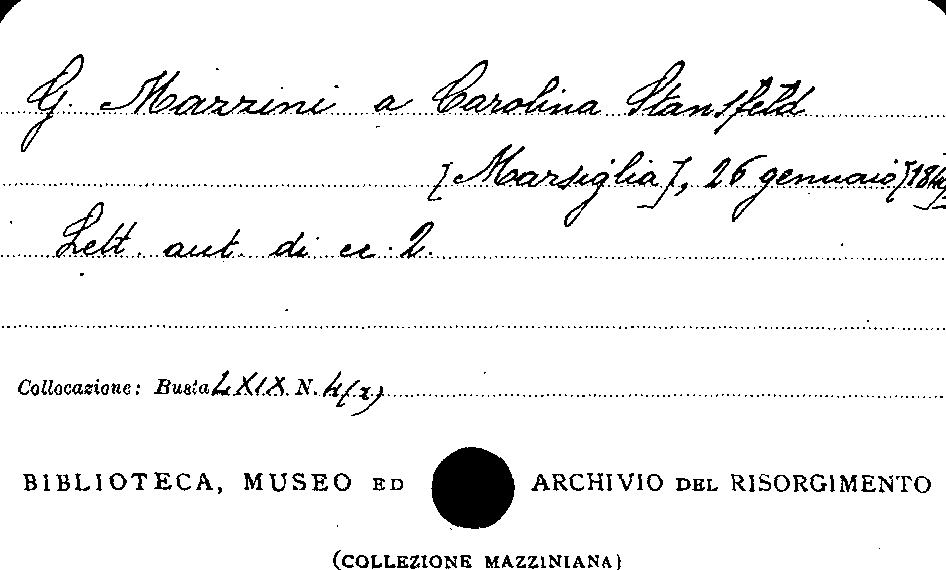 G. Mazzini a Carolina Stansfeld
[Marsiglia], 26 gennaio
Lett. aut. di cc. 2.
Collocazione: Busta LXIX N. 4(2)
BIBLIOTECA, MUSEO ED ARCHIVIO DEL RISORGIMENTO
(COLLEZIONE MAZZINIANA)